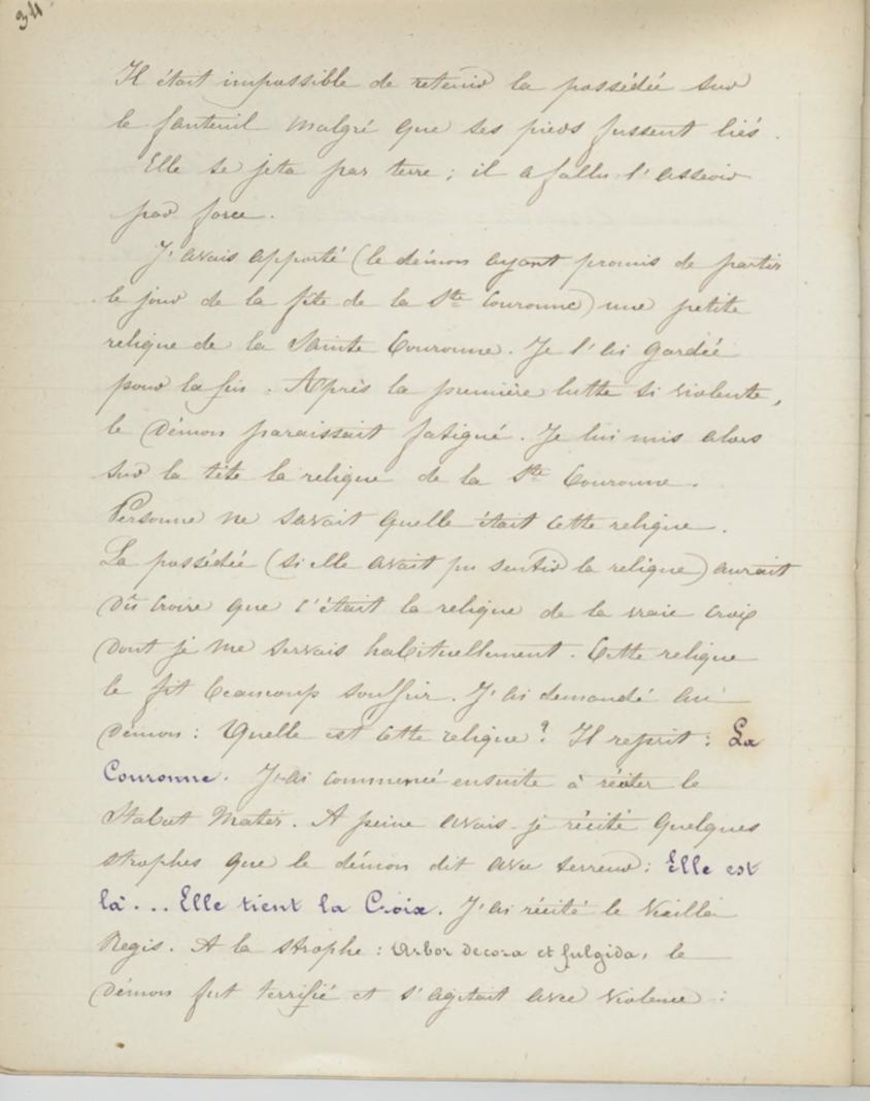 34
Il était impossible de retenir la possédée sur
le fauteuil malgré que ses pieds fussent liés.
Elle se jeta par terre ; il a fallu l'asseoir
par force.
J'avais apporté (le démon ayant promis de partir
le jour de la fête de la Ste Couronne) une petite
relique de la Sainte Couronne. Je l'ai gardée
pour la fin. Après la première lutte si violente,
le démon paraissait fatigué. Je lui mis alors
sur la tête la relique de la Ste Couronne.
Personne ne savait quelle était cette relique.
La possédée (si elle avait pu sentir la relique) aurait
dû croire que c'était la relique de la vraie croix
dont je me servais habituellement. Cette relique
le fit beaucoup souffrir. J'ai demandé au
démon : Quelle est cette relique ? Il reprit : La
Couronne. J'ai commencé ensuite à réciter le
Stabat Mater. A peine avais-je récité quelques
strophes que le démon dit avec terreur : Elle est
là ... Elle tient la Croix. J'ai récité le Vexilla
Regis. A la strophe : Arbor decora et fulgida, le
démon fut terrifié et s'agitait avec violence :